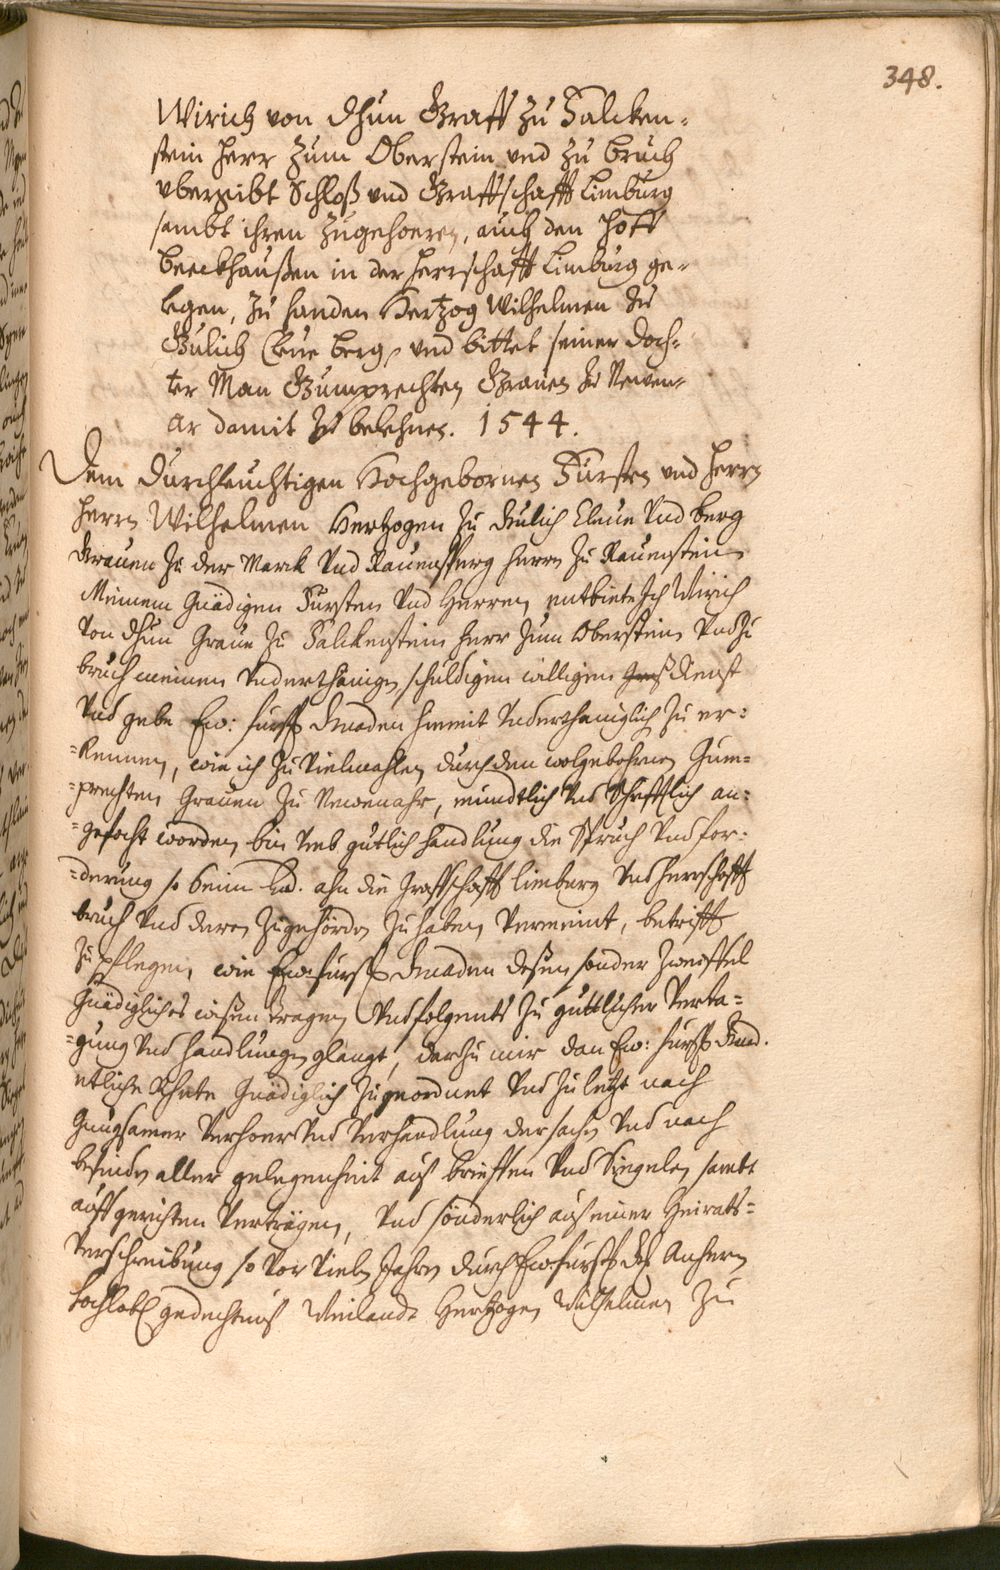 348.
Wirich von Dhun Graff zu Falcken-
stein Herr zum Oberstein und zu Bruch
ubergibt Schloß und Graffschafft Limburg
sambt ihren zugehoeren, auch den Hoff
Beeckhaußen in der Herrschafft Limburg ge-
legen, zu handen Hertzog Wilhelmen zu
Gulich Cleue Berg, und bittet seiner doch-
ter Man Gumprechten Grauen zu Newen-
ar damit zu belehnen. 1544.
Dem Durchleuchtigen Hochgebornen Fursten und Herrn
Herrn Wilhelmen Hertzogen zu Gulich Cleue Vnd Berg
Grauen zu der Marck Vnd Rauensperg Herrn zu Rauenstein
Meinem Gnädigen Fursten Vnd Herren, entbiete Ich Wirich
Von Dhun Graue zu Falckenstein Herr zum Oberstein Vnd zu
bruch meinen Vnderthänigen schuldigen willigen dienst
Vnd gebe Ew: fürstl Gnaden hiemit Vnderthäniglich zu er-
-kennen, wie ich zu Vielmahlen durch den wolgebohrnen Gum-
-prechten Grauen zu Newenahr, mündtlich Vnd Schrifftlich an-
-gesocht worden, bin Vmb gütlich handlung die Spruch Vnd for-
-derung so seine Lbd. ahn die Graffschafft limburg Vnd Herrschafft
bruch Vnd deren Zugehörden zu haben Vermeint, betrifft
zu pflegen, wie Ew fürstl Gnaden deßen sonder Zweiffel
Gnädigliches wißen tragen Vnd folgents zu güttlicher Verta-
-gung Vnd handlungen glangt, darzu mir dan Ew: fürstl Gnad.
etliche Rhäte Gnädiglich zugeordnet Vnd zu letzt nach
Gnugsamer Verhoer Vnd Verhandlung der sachen Vnd nach
befinden aller gelegenheit aus brieffen Vnd Siegelen sambt
auffgerichten Verträgen, Vnd sönderlich aus einer Heirats-
Verschreibung so Vor Vielen Jahren durch Ew fürstl Anhern
hochlobl gedechtnus Weilandt Hertzogen Wilhelmen zu